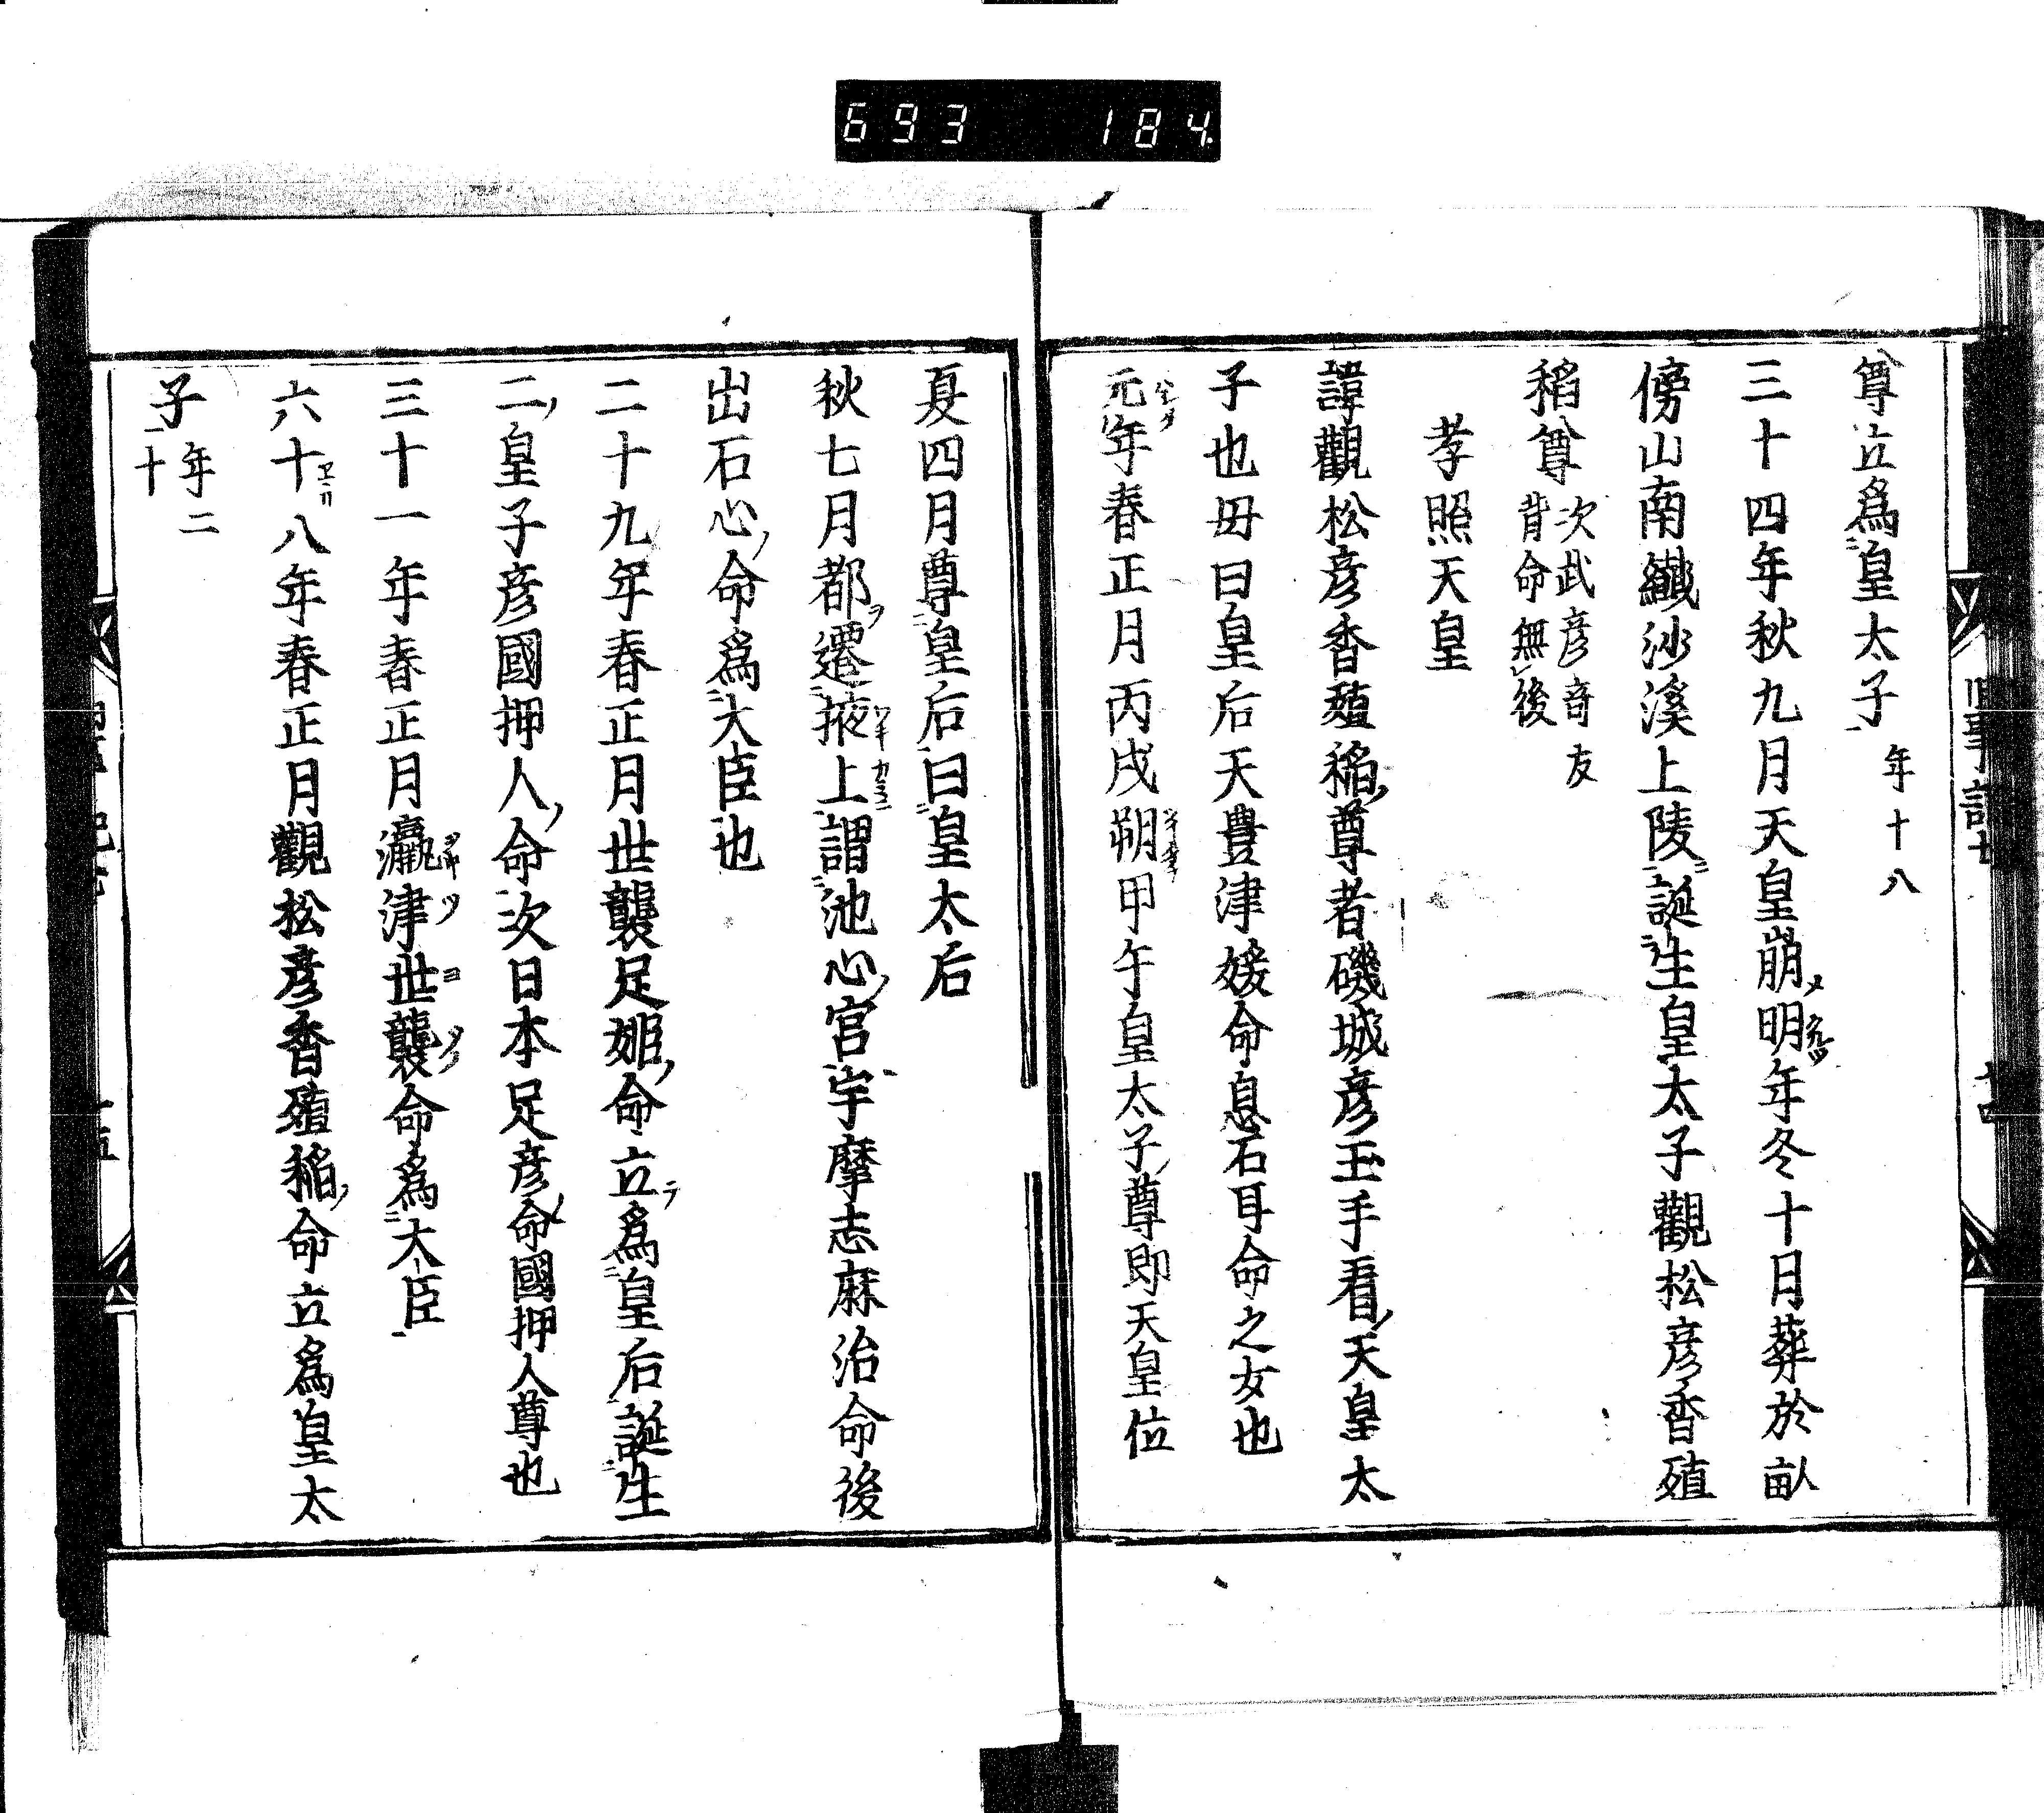 693 184
尊立為皇太子 年十八
三十四年秋九月天皇崩明年冬十月葬於畝
傍山南纎沙溪上陵誕生皇太子觀松彦香殖
稻尊 次武彦奇友
背命無後
孝照天皇
諱觀松彦香殖稲尊者磯城彦玉手看天皇太
子也母曰皇后天豊津媛命息石耳命之女也
元年春正月丙戌朔甲午皇太子尊即天皇位
夏四月尊皇后曰皇太后
秋七月都遷掖上謂池心宮宇摩志麻治命後
出石心命為大臣也
二十九年春正月世襲足姫命立為皇后誕生
二皇子彦國押人命次日本足彦命國押人尊也
三十一年春正月瀛津世襲命為大臣
六十八年春正月觀松彦香殖稲命立為皇太
子 年二
十